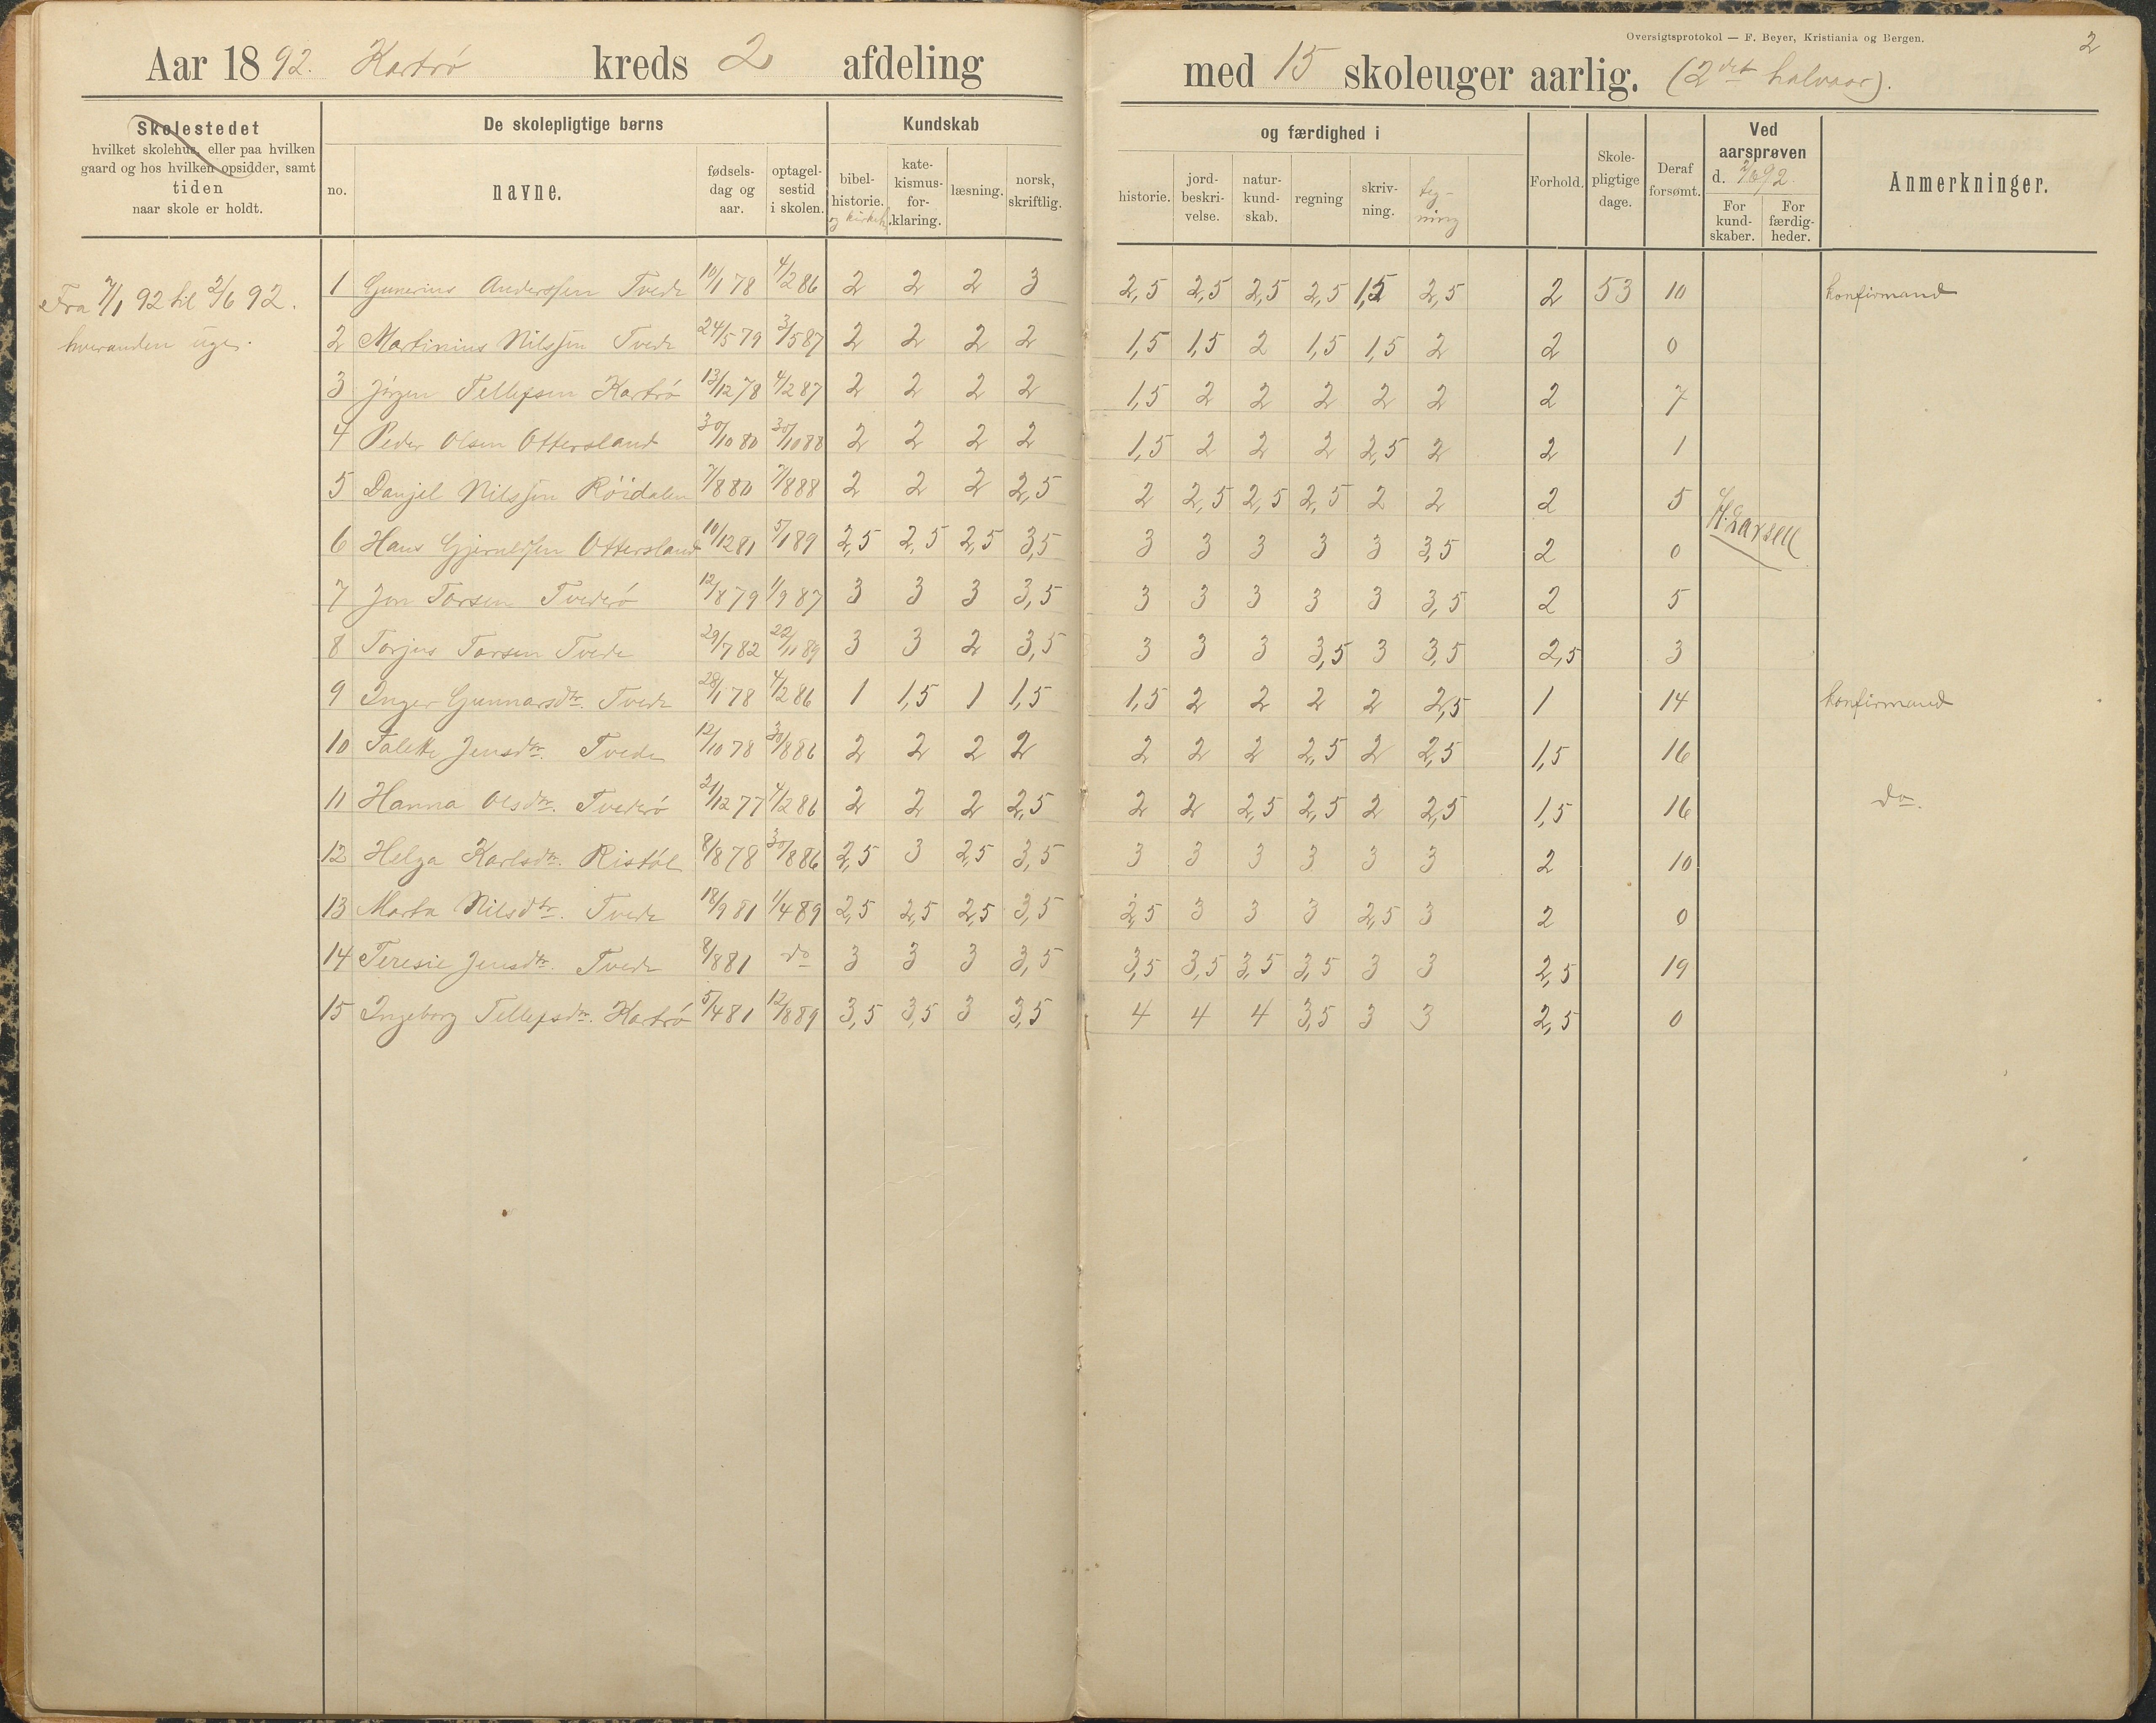 Oversigtsprotokol — F. Beyer, Kristiania og Bergen.
2
Aar 1892. Kartrö kreds 2 afdeling med 15 skoleuger aarlig. (2det halvaar).
Skolestedet
hvilket skolehus, eller paa hvilken
gaard og hos hvilken opsidder, samt
tiden
naar skole er holdt.
De skolepligtige børns
no.
navne.
fødsels-
dag og
aar.
optagel-
sestid
i skolen.
Kundskab
bibel-
historie.
og kirkeh.
kate-
kismus-
for-
klaring.
læsning.
norsk,
skriftlig.
og færdighed i
historie.
jord-
beskri-
velse.
natur-
kund-
skab.
regning
skriv-
ning.
teg-
ning
Forhold.
Skole-
pligtige
dage.
Deraf
forsømt.
Ved
aarsprøven
d. 92.
For
kund-
skaber.
For
færdig-
heder.
Anmerkninger.
Fra 7/1 92 til 2/6 92.
hveranden uge.
1 Gunerius Anderssen Tvede 10/1 78 4/2 86 2 2 2 3 2,5 2,5 2,5 2,5 1,5 2,5 2 53 10 konfirmand
2 Martinius Nilssen Tvede 24/5 79 3/5 87 2 2 2 2 1,5 1,5 2 1,5 1,5 2 2 0
3 Jörgen Tellefsen Kartrö 13/12 78 4/2 87 2 2 2 2 1,5 2 2 2 2 2 2 7
4 Peder Olsen Ottersland 30/10 80 30/10 88 2 2 2 2 1,5 2 2 2 2,5 2 2 1
5 Danjel Nilssen Röidalen 7/8 80 7/8 88 2 2 2 2,5 2 2,5 2,5 2,5 2 2 2 5
H. Larsen
6 Hans Gjerulfsen Ottersland 10/12 81 5/1 89 2,5 2,5 2,5 3,5 3 3 3 3 3 3,5 2 0
7 Jon Torsen Tvederö 12/8 79 1/9 87 3 3 3 3,5 3 3 3 3 3 3,5 2 5
8 Torjus Torsen Tvede 29/7 82 22/11 89 3 3 2 3,5 3 3 3 3,5 3 3,5 2,5 3
9 Inger Gunnarsdtr. Tvede 28/1 78 4/2 86 1 1,5 1 1,5 1,5 2 2 2 2 2,5 1 14 konfirmand
10 Talette Jensdtr. Tvede 12/10 78 30/8 86 2 2 2 2 2 2 2 2,5 2 2,5 1,5 16
11 Hanna Olsdtr. Tvederö 21/12 77 4/2 86 2 2 2 2,5 2 2 2,5 2,5 2 2,5 1,5 16 do.
12 Helga Karlsdtr. Ristöl 8/8 78 30/8 86 2,5 3 2,5 3,5 3 3 3 3 3 3 2 10
13 Marta Nilsdtr. Tvede 18/9 81 1/4 89 2,5 2,5 2,5 3,5 2,5 3 3 3 2,5 3 2 0
14 Teresie Jensdtr. Tvede 8/8 81 do 3 3 3 3,5 3,5 3,5 3,5 3,5 3 3 2,5 19
15 Ingeborg Tellefsdtr. Kartrö 5/4 81 12/8 89 3,5 3,5 3 3,5 4 4 4 3,5 3 3 2,5 0